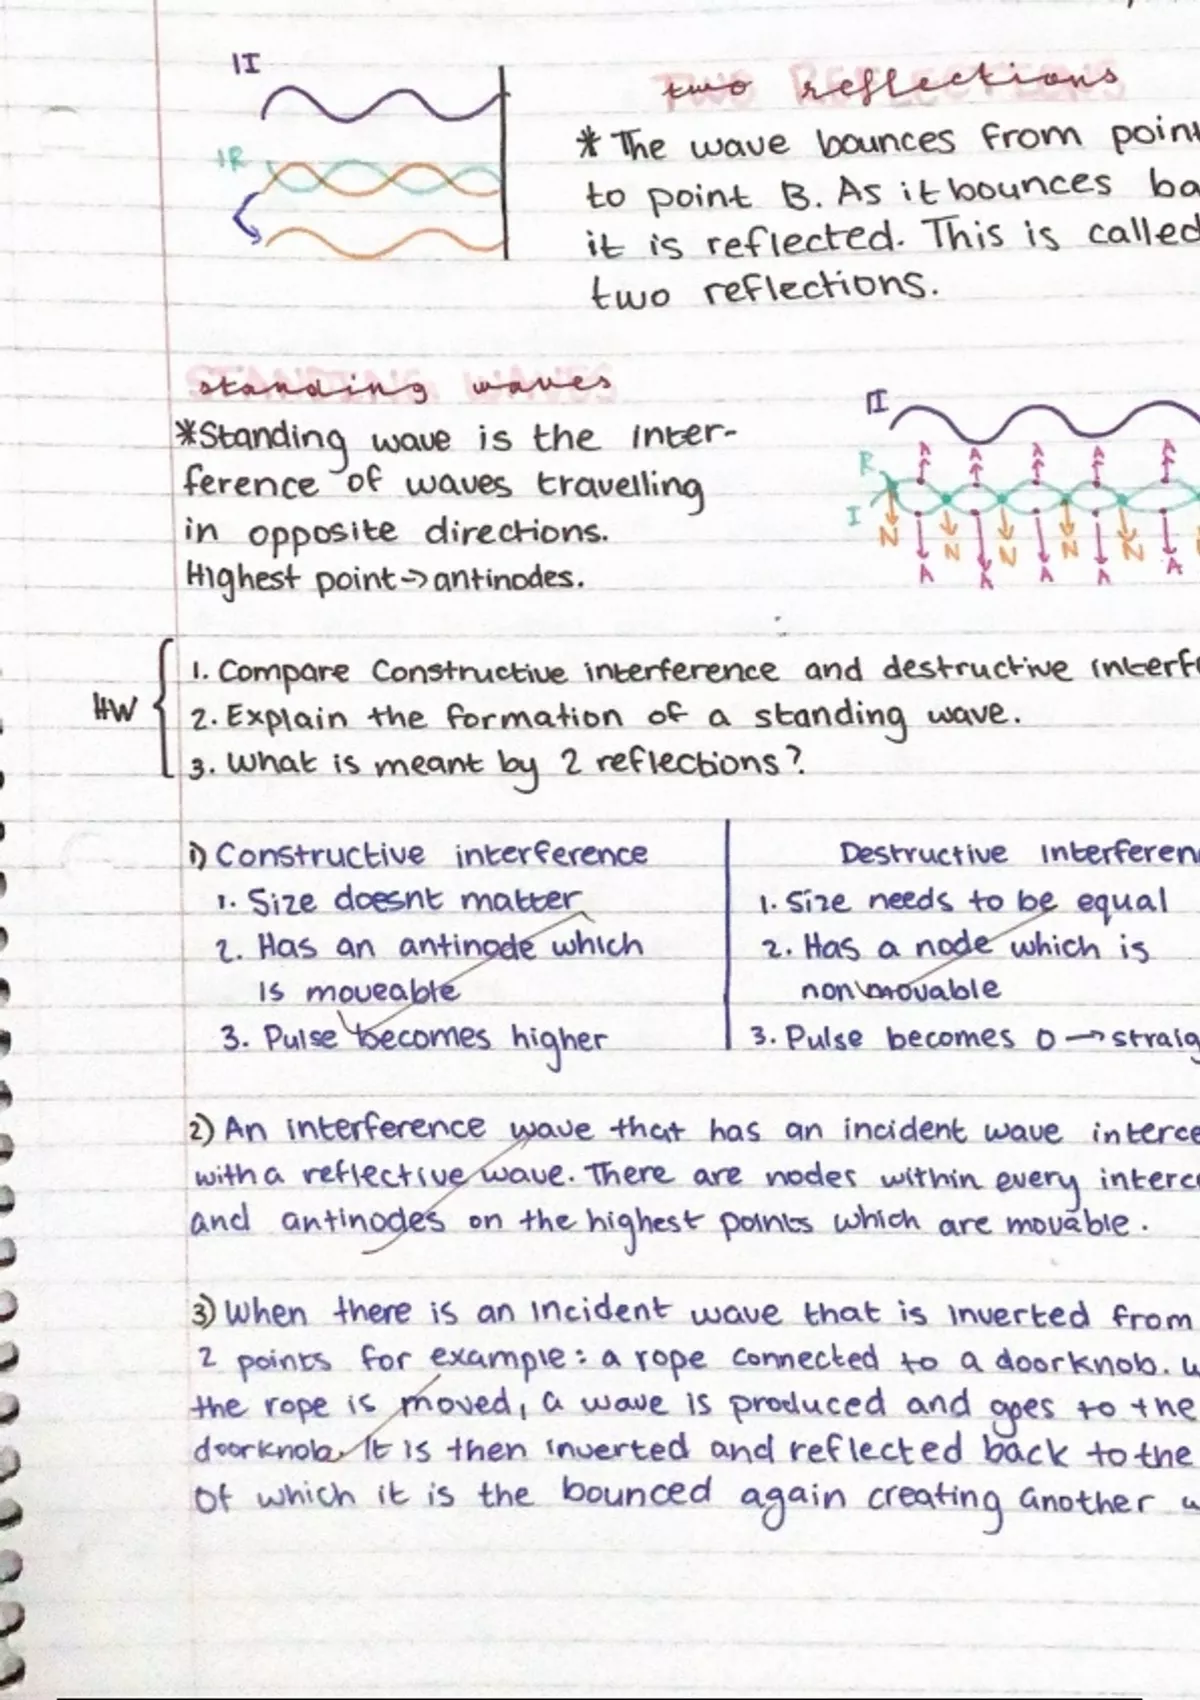 1I
two reflections
* The wave bounces from point
to point B. As it bounces ba
it is reflected. This is called
two reflections.
1R
standing waves
*Standing wave is the inter-
ference of waves travelling
in opposite directions.
Highest point → antinodes.
II
A A A A A
R
I
N N N N N
A A A A A
HW
1. Compare Constructive interference and destructive interfe
2. Explain the formation of a standing wave.
3. What is meant by 2 reflections?
1) Constructive interference
1. Size doesnt matter
2. Has an antinode which
is moveable
3. Pulse becomes higher
Destructive interferen
1. Size needs to be equal
2. Has a node which is
non movable
3. Pulse becomes 0 → straig
2) An interference wave that has an incident wave interce
with a reflective wave. There are nodes within every interce
and antinodes on the highest points which are movable.
3) When there is an incident wave that is inverted from
2 points for example: a rope connected to a doorknob. w
the rope is moved, a wave is produced and goes to the
doorknob. It is then inverted and reflected back to the
of which it is the bounced again creating another w